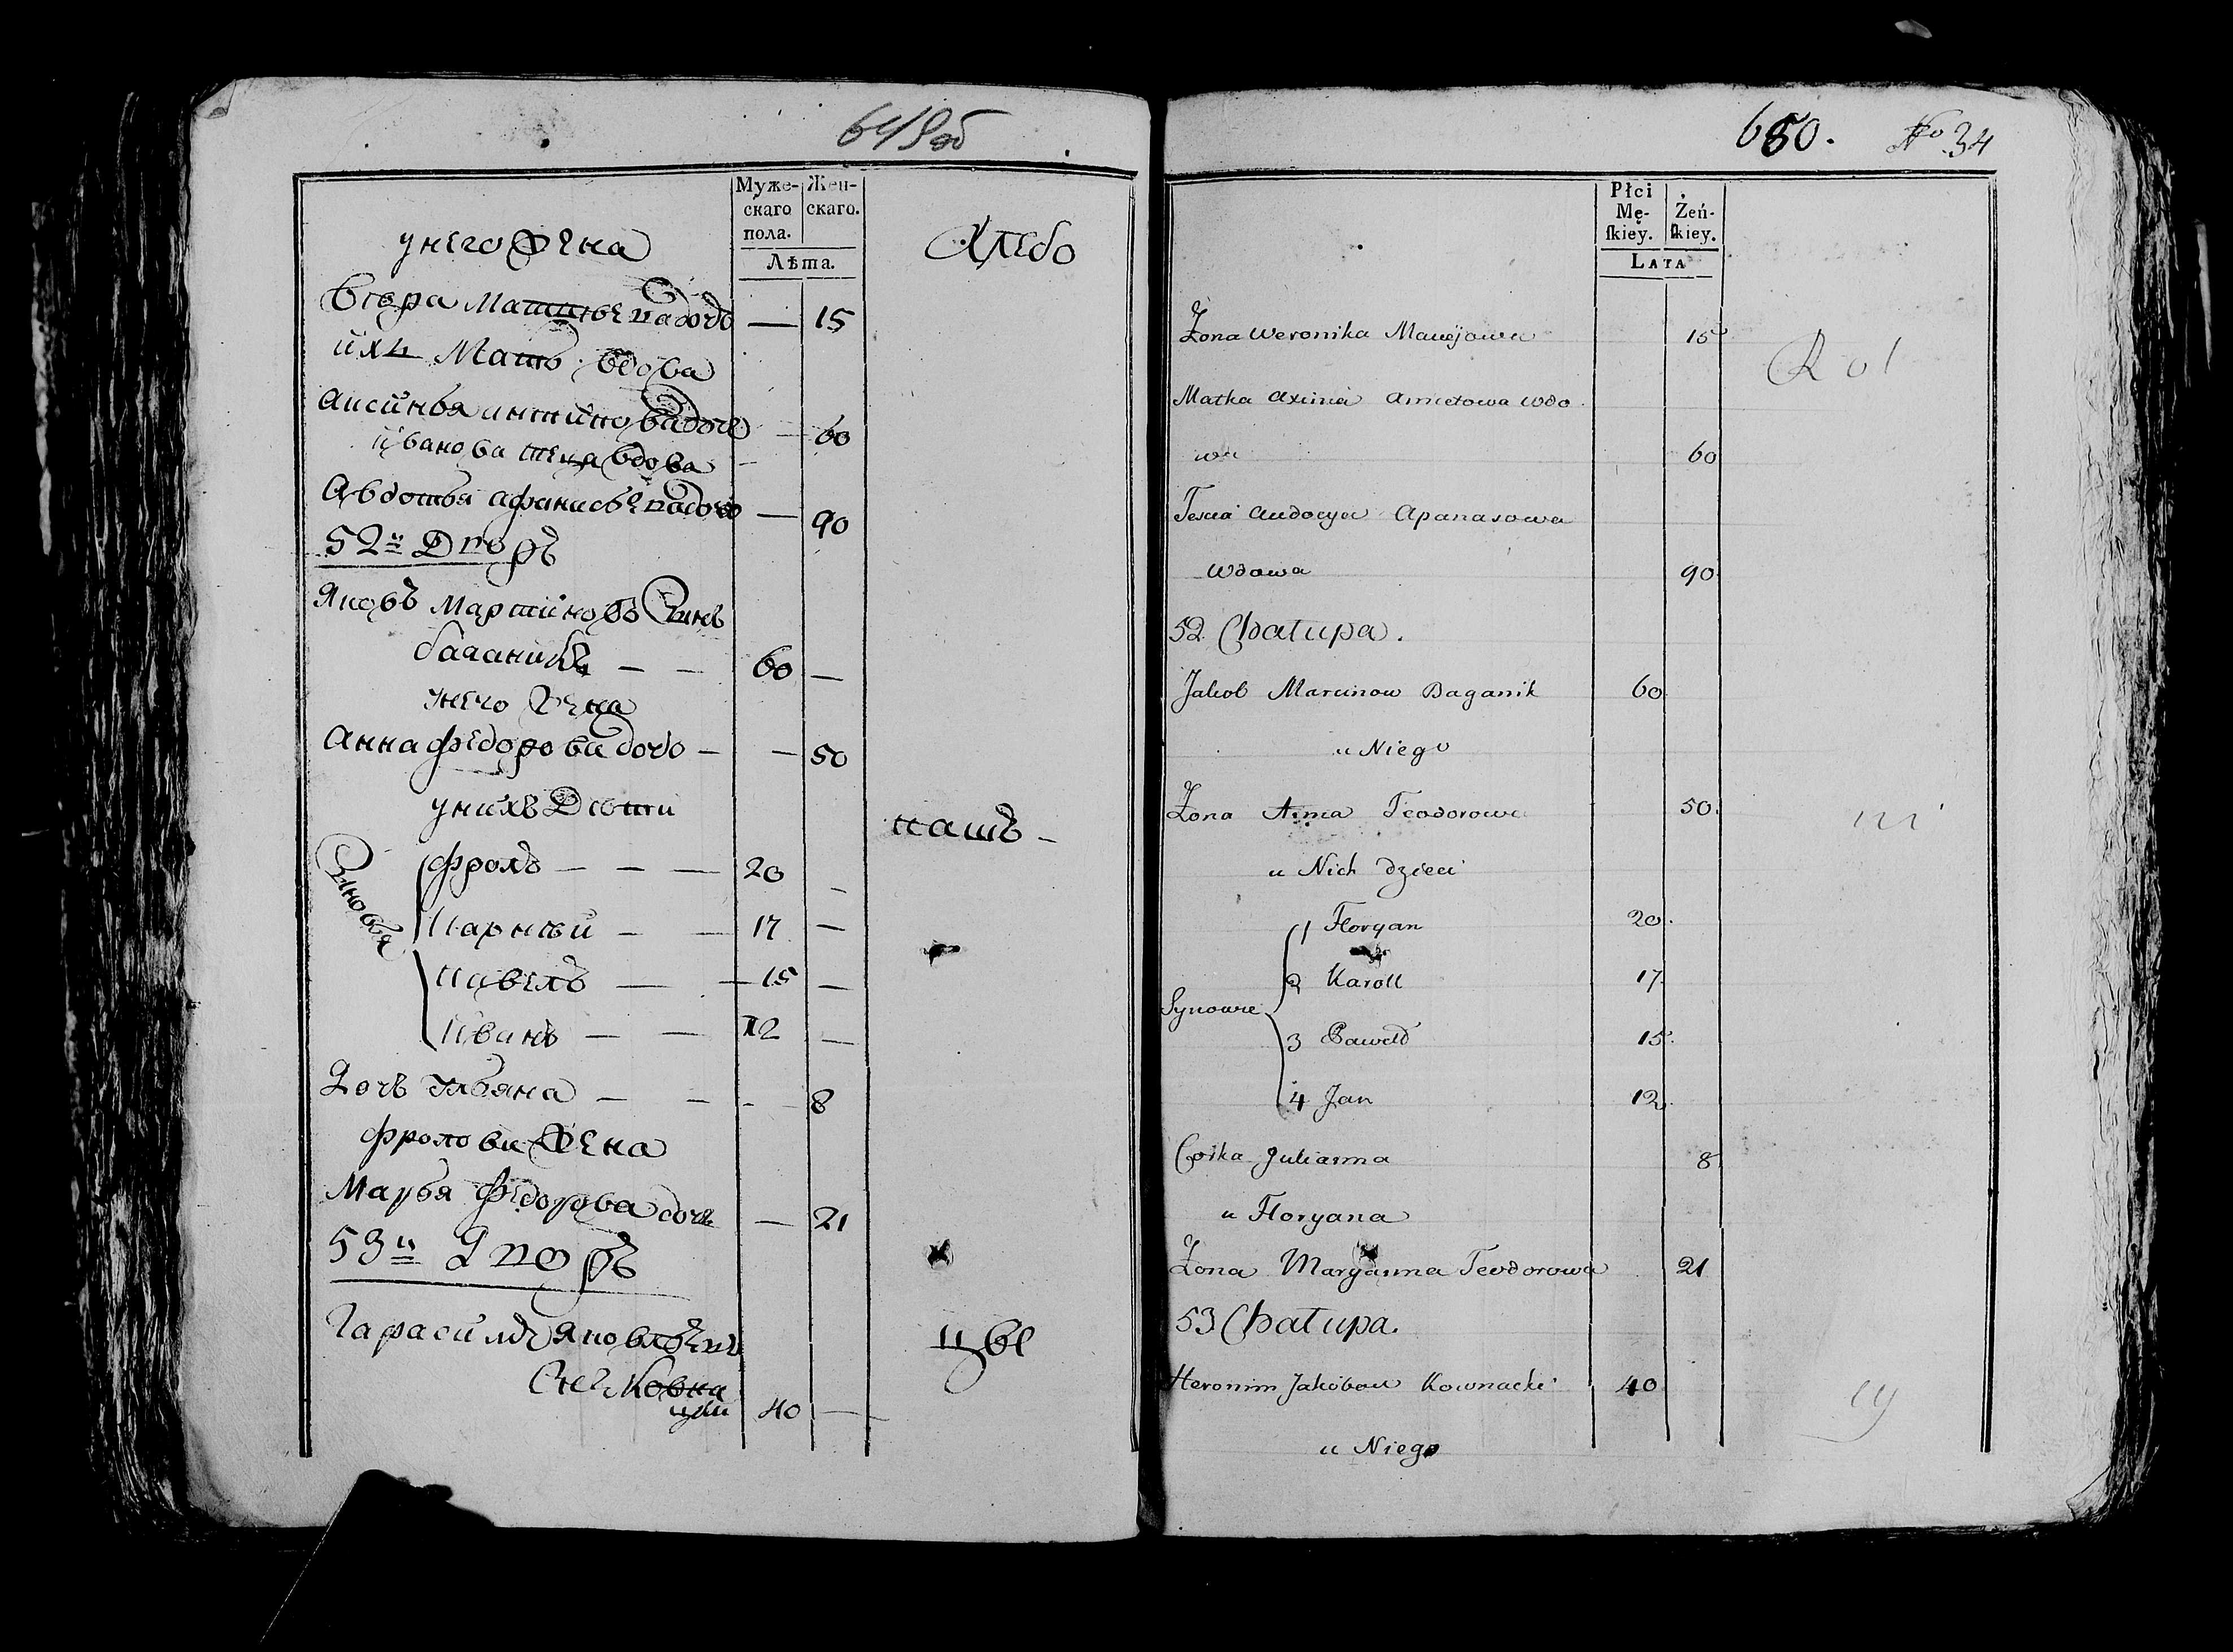 649об
Муже-
скаго
пола.
Жен-
скаго.
Лѣта.
у него жена
Хлебо
Вера Матвеева дочь — 15
ихъ Мать вдова
Аксинья дочь — 60
иванова теща вдова
Авдотья афанасьева дочь — 90
52й Дворъ
Яковъ Мартиновъ Сынъ
баганикъ — — 60 —
у него жена
Анна федорова дочь — — 50
у нихъ Дети
пашъ —
Сыновья
фролъ — — — 20 —
Карнѣй — — 17 —
павелъ — — 15 —
Иванъ — — 12 —
Дочь Ульяна — — - — 8
фролова жена
Марья Федорова дочь — 21
53й Дворъ
Гарасимъ Яковлевъ
цы
цкий 40 —
650. No 34
Płci
Mę-
ſkiey.
Żeń-
ſkiey.
LATA
Żona Weronika Maciejowa 15
Rol
Matka Axinia Wdo
wa 60
Tescia Audocya Apanasowa
Wdowa 90
52 Chatupa.
Jakob Marcinow Baganik 60
u Niego
Żona Anna Teodorowa 50.
ni
u Nich dzieci
Synowie
1 Floryan 20.
2 Karoll 17.
3 Pawełł 15.
4 Jan 12.
Corka Julianna 8
u Floryana
Żona Maryanna Teodorowa 21
53 Chatupa.
Heronim Jakobow Kownacki 40
cy
u Niego